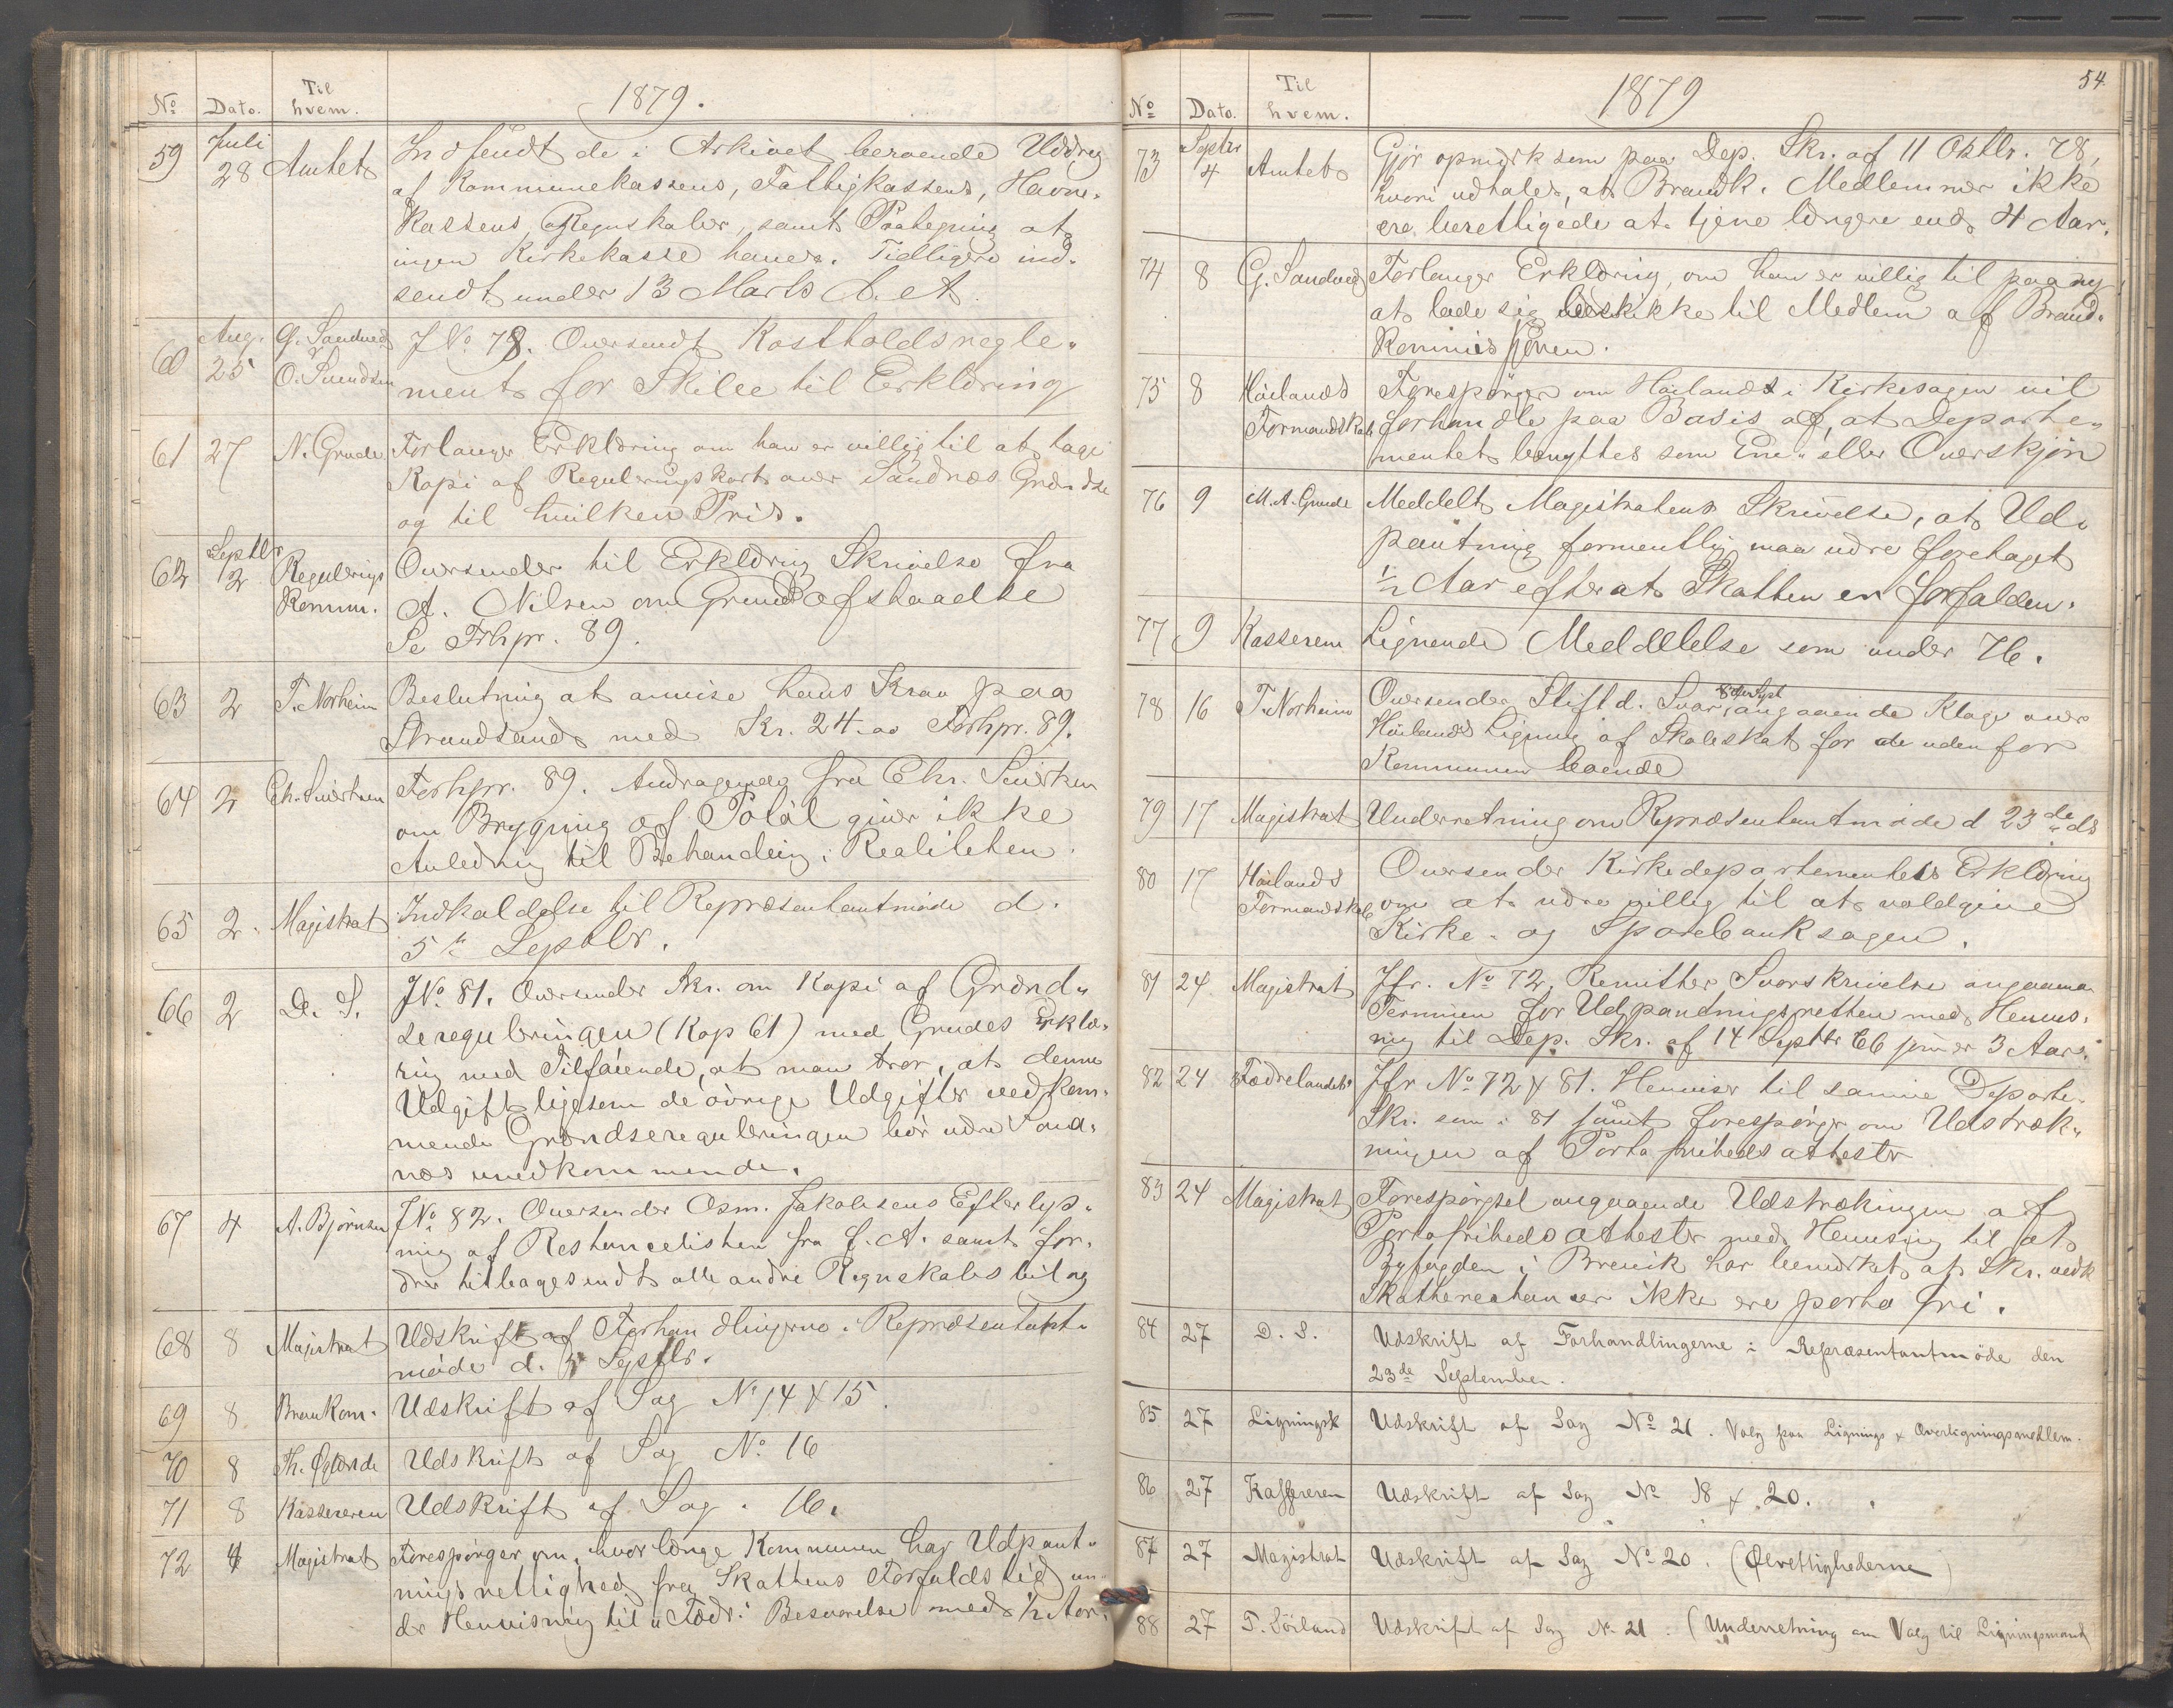 No Dato. Til hvem. 1879.
59 Juli 28 Amtet Indsendt de i Arkivet beroende Uddrag
af Kommunekassens, Fattigkassens, Havne-
kassens Regnskaber, samt Paategning at
ingen Kirkekasse haves. Tidligere ind-
sendt under 13 Marts d. A.
60 Aug. 25 G. Sandved O. Svendsen J No. 78. Oversendt Kostholdsregle-
ment for Skilee til Erklæring
61 27 N. Grude Forlanger Erklæring om han er villig til at tage
Kopi af Reguleringskart over Sandnæs Grændse
og til hvilken Pris.
62 Septbr 2 Regulerings Komm. Oversender til Erklæring Skrivelse fra
A. Nilsen om Grundafstaaelse
Se Frhpr. 89.
63 2 T. Norheim Beslutning at anvise hans Krav paa
Strandsand med Kr. 24.00 Forhpr. 89.
64 2 Chr. Sivertsen Forhpr. 89. Andragende fra Chr. Sivertsen
om Brygning af Potøl giver ikke
Anledning til Behandling i Realiteten.
65 2. Magistrat Indkaldelse til Repræsentantmøde d.
5te Septbr.
66 2 D. S. J No. 81. Oversender Skr. om Kopi af Grænd-
sereguleringen (Kop 61) med Grudes Erklæ-
ring med Tilføiende, at man tror, at denne
Udgift ligesom de øvrige Udgifter vedkom-
mende Grændsereguleringen bør være Sand-
næs uvedkommende.
67 4 A. Bjørnsen J No. 82. Oversender Osm. Jakobsens Efterlys-
ning af Restancelisten fra f. A. samt for-
drer tilbagesendt alle andre Regnskabsbilag
68 8 Magistrat Udskrift af Forhandlingerne i Repræsentant-
møde d. 5 Septbr.
69 8 Brankom. Udskrift af Sag No 14 & 15.
70 8 Th. Øglænde Udskrift af Sag No. 16
71 8 Kassereren Udskrift af Sag . 16.
72 4 Magistrat Forespørger om, hvor længe Kommunen har Udpant-
ningsrettighed fra Skattens Forfaldstid un-
der Henvisning til "Fædr." Besvarelse med ½ Aar.
54
No Dato. Til hvem. 1879
73 Septbr 4 Amtet Gjør opmærksom paa Dep. Skr. af 11 Oktbr. 78,
hvori udtales, at Brandk. Medlemmer ikke
ere berettigede at tjene længere end 4 Aar.
74 8 G. Sandved Forlanger Erklæring, om han er villig til paany
at lade sig beskikke til Medlem af Brand-
kommissjonen.
75 8 Høilands Formandskab Forespørger om Høilands i Kirkesagen vil
forhandle paa Basis af, at Departe-
mentet benyttes som Ene- eller Overskjøn
76 9 M. A. Grude Meddelt Magistratens Skrivelse, at Ud-
pantning formentlig maa være foretaget
½ Aar efterat Skatten er forfalden.
77 9 Kassereren Lignende Meddelelse som under 76.
78 16 T. Norheim Oversender Stiftd. Svar angaaende Klage over
Høilands Ligning af Skoleskat for de udenfor
Kommunen boende
79 17 Magistrat Underretning om Repræsentantmøde d 23de ds
80 17 Høilands Formandskab Oversender Kirkedepartementets Erklæring
om at være villig til at voldgive
Kirke- og Sparebanksagen.
81 24 Magistrat Jfr. No 72. Remitter Svarskrivelse angaaende
Terminen for Udpantningsretten med Henvis-
ning til Dep. Skr. af 14 Septbr 66 som er 3 Aar.
82 24 Fædrelandet Jfr No 72 & 81. Henviser til samme Departe.
Skr. som i 81 samt forespørger om Udstræk-
ningen af Portofrihedsattester
83 24 Magistrat Forespørgsel angaaende Udstrækningen af
Portofrihedsattester med Henvisning til at
Byfogden i Brevik har bemærket, at Skr. vedk
Skatterestancer ikke ere portofri.
84 27 D. S. Udskrift af Forhandlingerne i Repræsentantmøde den
23de September.
85 27 Ligningsk Udskrift af Sag No 21. Valg paa Lignings & Overligningsmedlem.
86 27 Kassereren Udskrift af Sag No 18 & 20.
87 27 Magistrat Udskrift af Sag No 20. (Ølrettighederne)
88 27 T. Sörland Udskrift af Sag No 21. (Underretning om Valg til Ligningsmand)